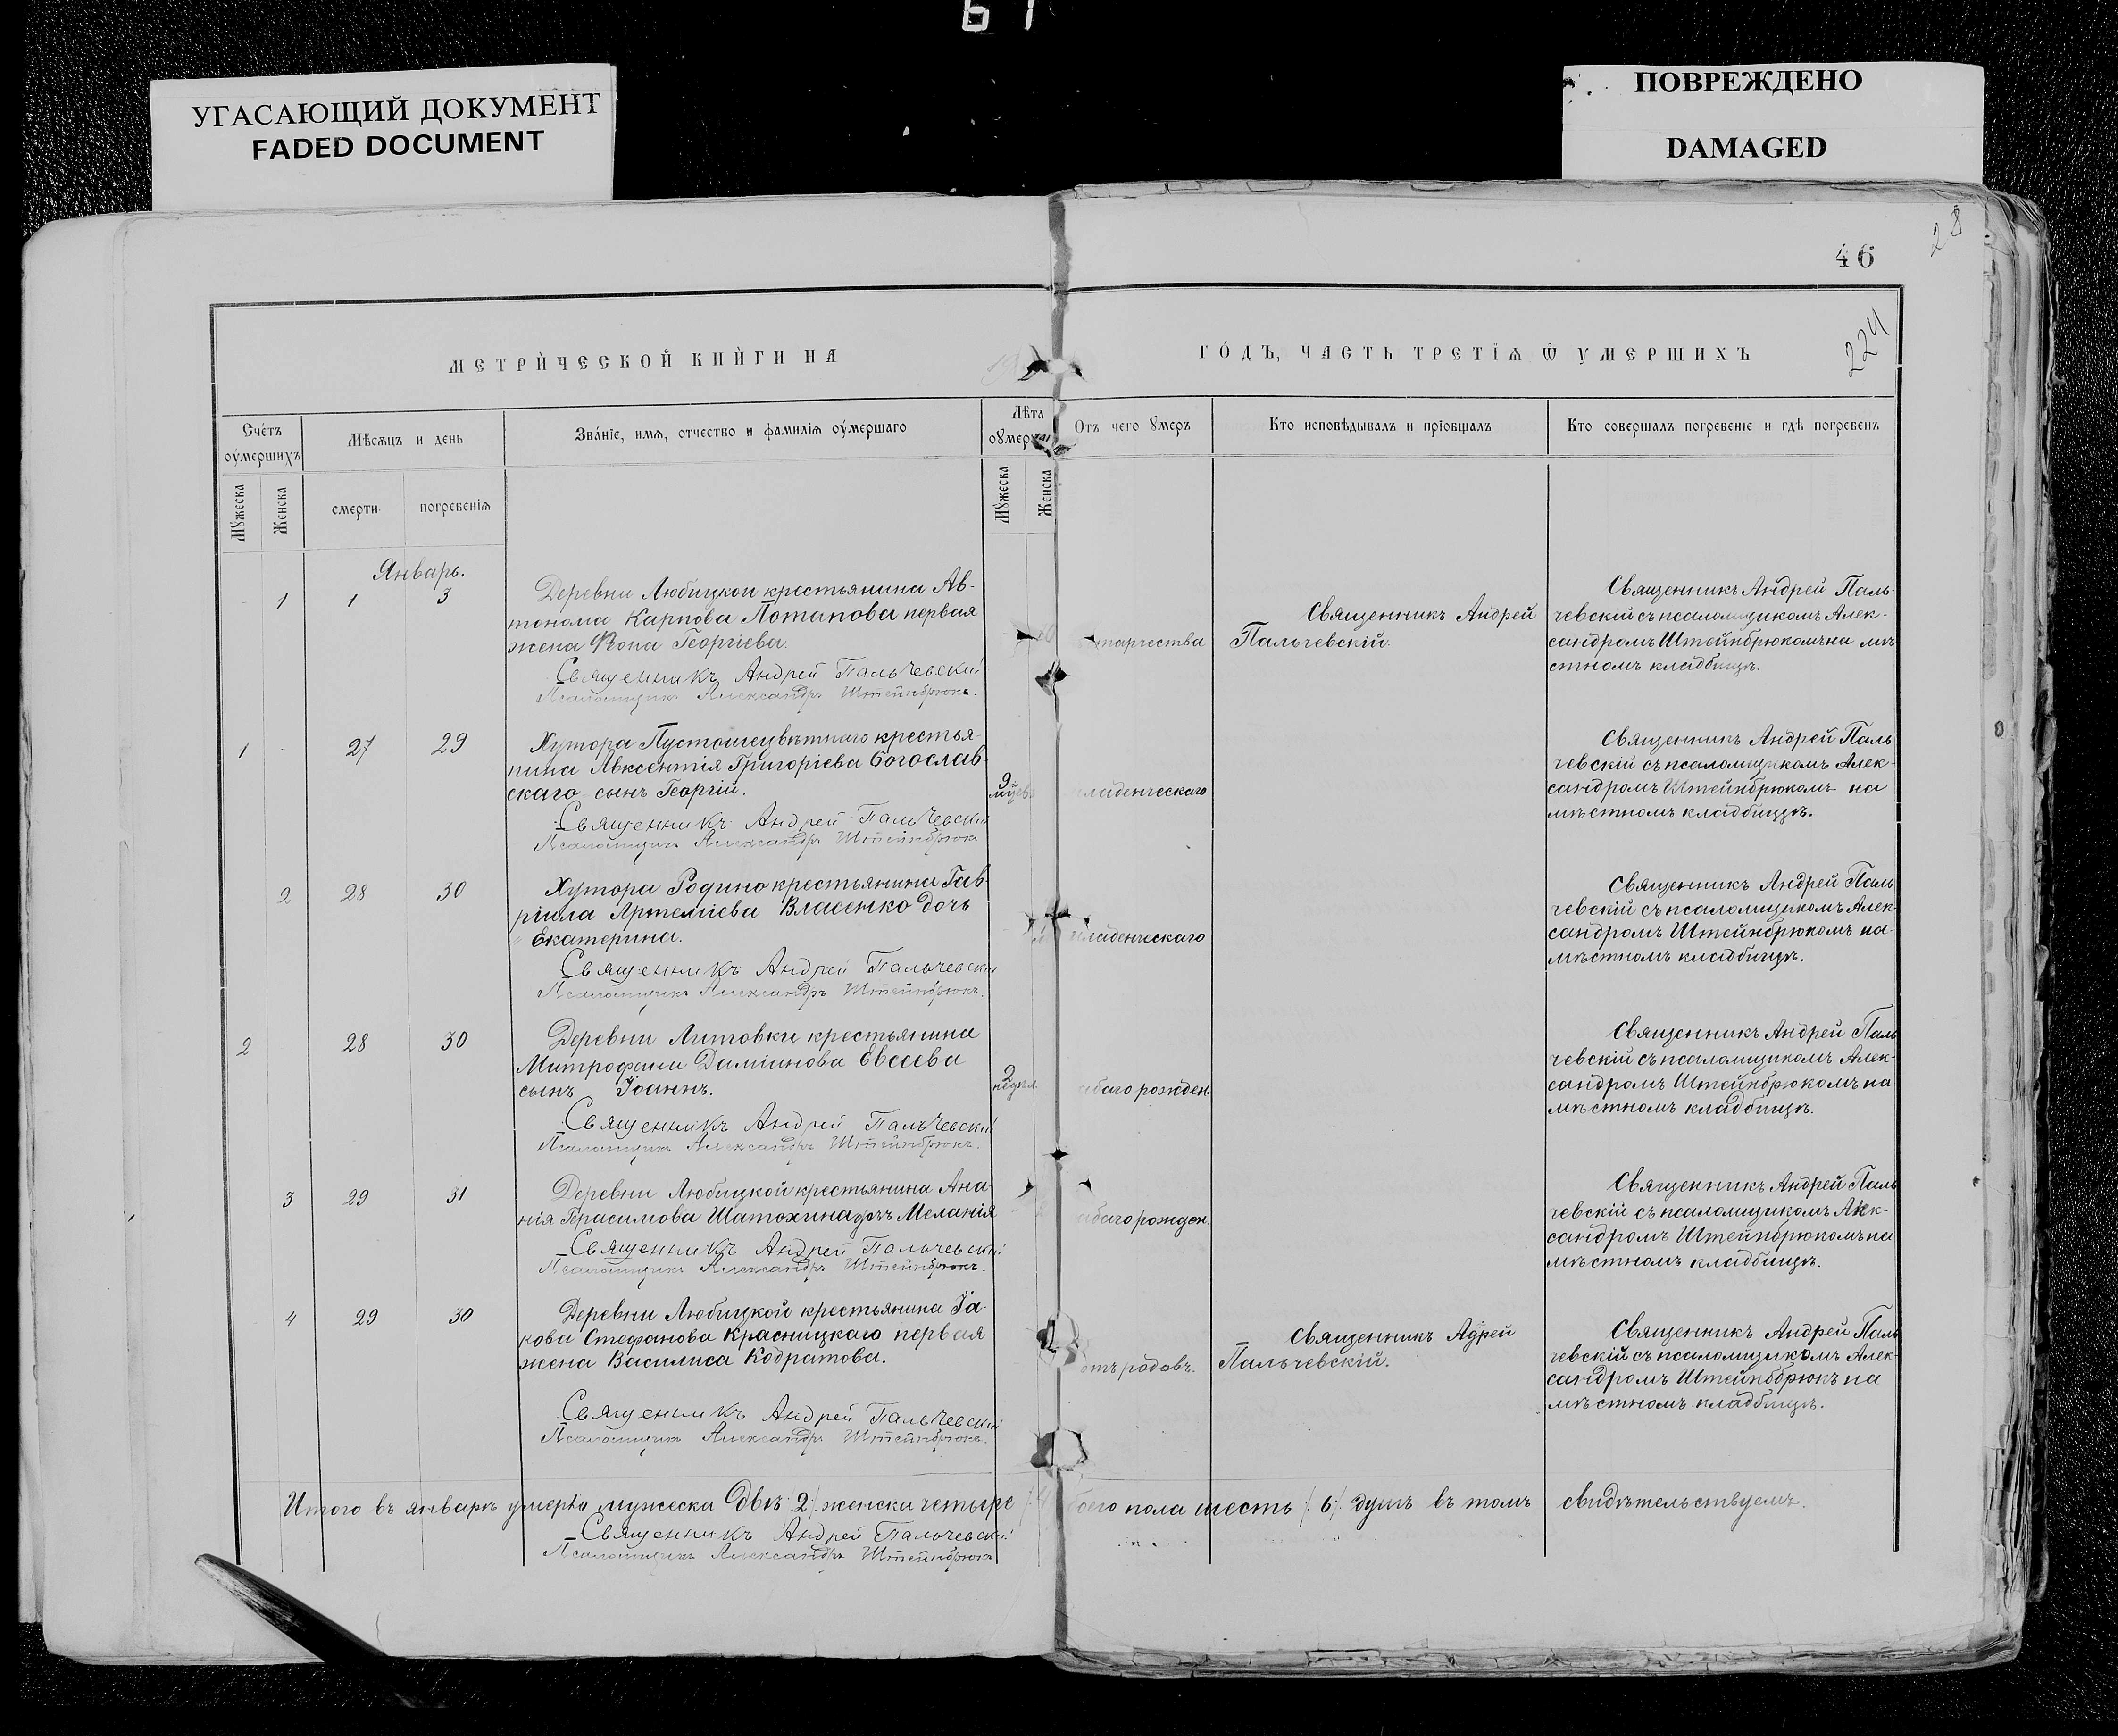 61
УГАСАЮЩИЙ ДОКУМЕНТ
FADED DOCUMENT
ПОВРЕЖДЕНО
DAMAGED
28
46
224
МЕТРИ́ЧЕСКОЙ КНИ́ГИ НА
ГО́ДЪ, ЧАСТЬ ТРЕТІѦ Ѿ УМЕРШИХЪ
Сче́тъ оу́мершихъ
Мѣсѧцъ и день
Зва́ніе, имѧ, отчество и фамиліѧ оу́мершаго
Лѣта
Отъ чего Ꙋмеръ
Кто исповѣдывалъ и прїобщалъ
Кто совершалъ погребеніе и гдѣ погребенъ
Мꙋжеска
Женска
смерти
погребеніѧ
Мꙋжеска
Женска
Январь.
1 1 3
Деревни Любицкой крестьянина Ав-
тонома Карпова Потапова первая
жена Ѳеорна Георгіева.
Священникъ Андрей Пальчевскій
Псаломщикъ Александръ Штейнбрюкъ.
старчества
Священникъ Андрей
Пальчевскій.
Священникъ Андрей Паль-
чевскій съ псаломщикомъ Алек-
сандромъ Штейнбрюкомъ на мѣ
стномъ кладбищѣ.
1 27 29
Хутора Пустошецвѣтнаго крестья-
нина Авксентія Григоріева Богослав-
скаго сынъ Георгій.
Священникъ Андрей Пальчевскій
Псаломщикъ Александръ Штейнбрюкъ
9
мцевъ
младенческаго
Священникъ Андрей Паль
чевскій съ псаломщикомъ Алек-
сандромъ Штейнбрюкомъ на
мѣстномъ кладбищѣ.
2 28 30
Хутора Родино крестьянина Гав-
ріила Артеміева Власенко дочь
Екатерина.
Священникъ Андрей Пальчевскій
Псаломщикъ Александръ Штейнбрюкъ.
младенческаго
Священникъ Андрей Паль
чевскій съ псаломщикомъ Алек-
сандромъ Штейнбрюкомъ на
мѣстномъ кладбищѣ.
2 28 30
Деревни Литовки крестьянина
Митрофана Даміанова Евсеева
сынъ Іоаннъ.
Священникъ Андрей Пальчевскій
Псаломщикъ Александръ Штейнбрюкъ.
2
недѣл
абаго рожден
Священникъ Андрей Паль
чевскій съ псаломщикомъ Алек-
сандромъ Штейнбрюкомъ на
мѣстномъ кладбищѣ.
3 29 31
Деревни Любицкой крестьянина Ана-
нія Герасимова Шатохина дочь Меланія
Священникъ Андрей Пальчевскій
Псаломщикъ Александръ Штейнбрюкъ.
абаго рожден.
Священникъ Андрей Паль
чевскій съ псаломщикомъ Алек-
сандромъ Штейнбрюкомъ на
мѣстномъ кладбищѣ.
4 29 30
Деревни Любицкой крестьянина Іа-
кова Стефанова Красницкаго первая
жена Василиса Кодратова.
Священникъ Андрей Пальчевскій
Псаломщикъ Александръ Штейнбрюкъ.
отъ родовъ.
Священникъ Адрей
Пальчевскій.
Священникъ Андрей Паль
чевскій съ псаломщикомъ Алек-
сандромъ Штейнбрюкъ на
мѣстномъ кладбищѣ.
Итого въ январѣ умерло мужеска двѣ /2/ женска четыре обоего пола шесть /6/ душъ въ томъ свидѣтельствуемъ.
Священникъ Андрей Пальчевскій
Псаломщикъ Александръ Штейнбрюкъ